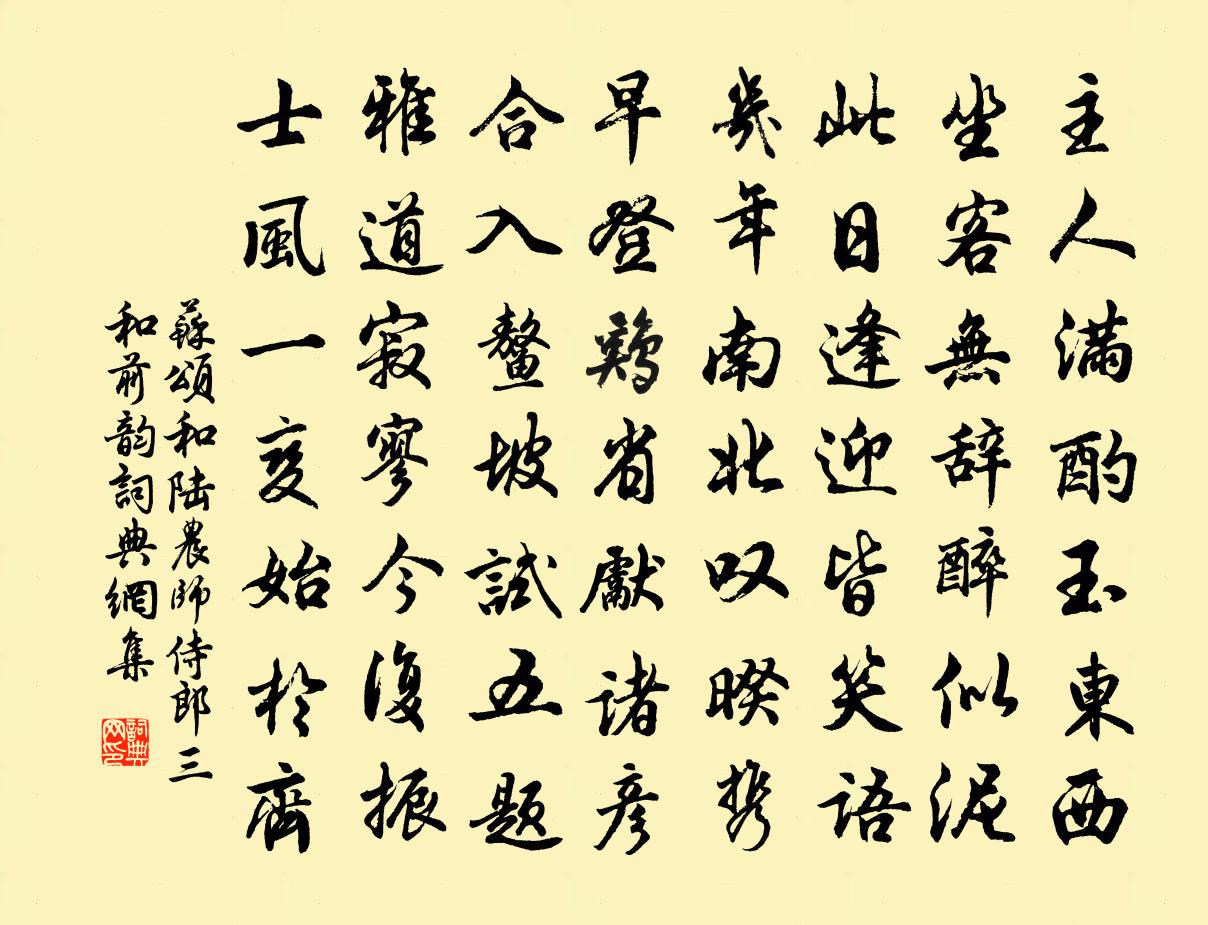 主人滿酌玉東西
坐客無辭醉似泥
此日逢迎皆笑語
幾年南北叹暌携
早登鷄省獻諸彦
合入鰲坡試五題
雅道寂寥今復振
士風一变始於齊
蘇頌和陆農师侍郎三
和前韵詞典網集
詞典
网印